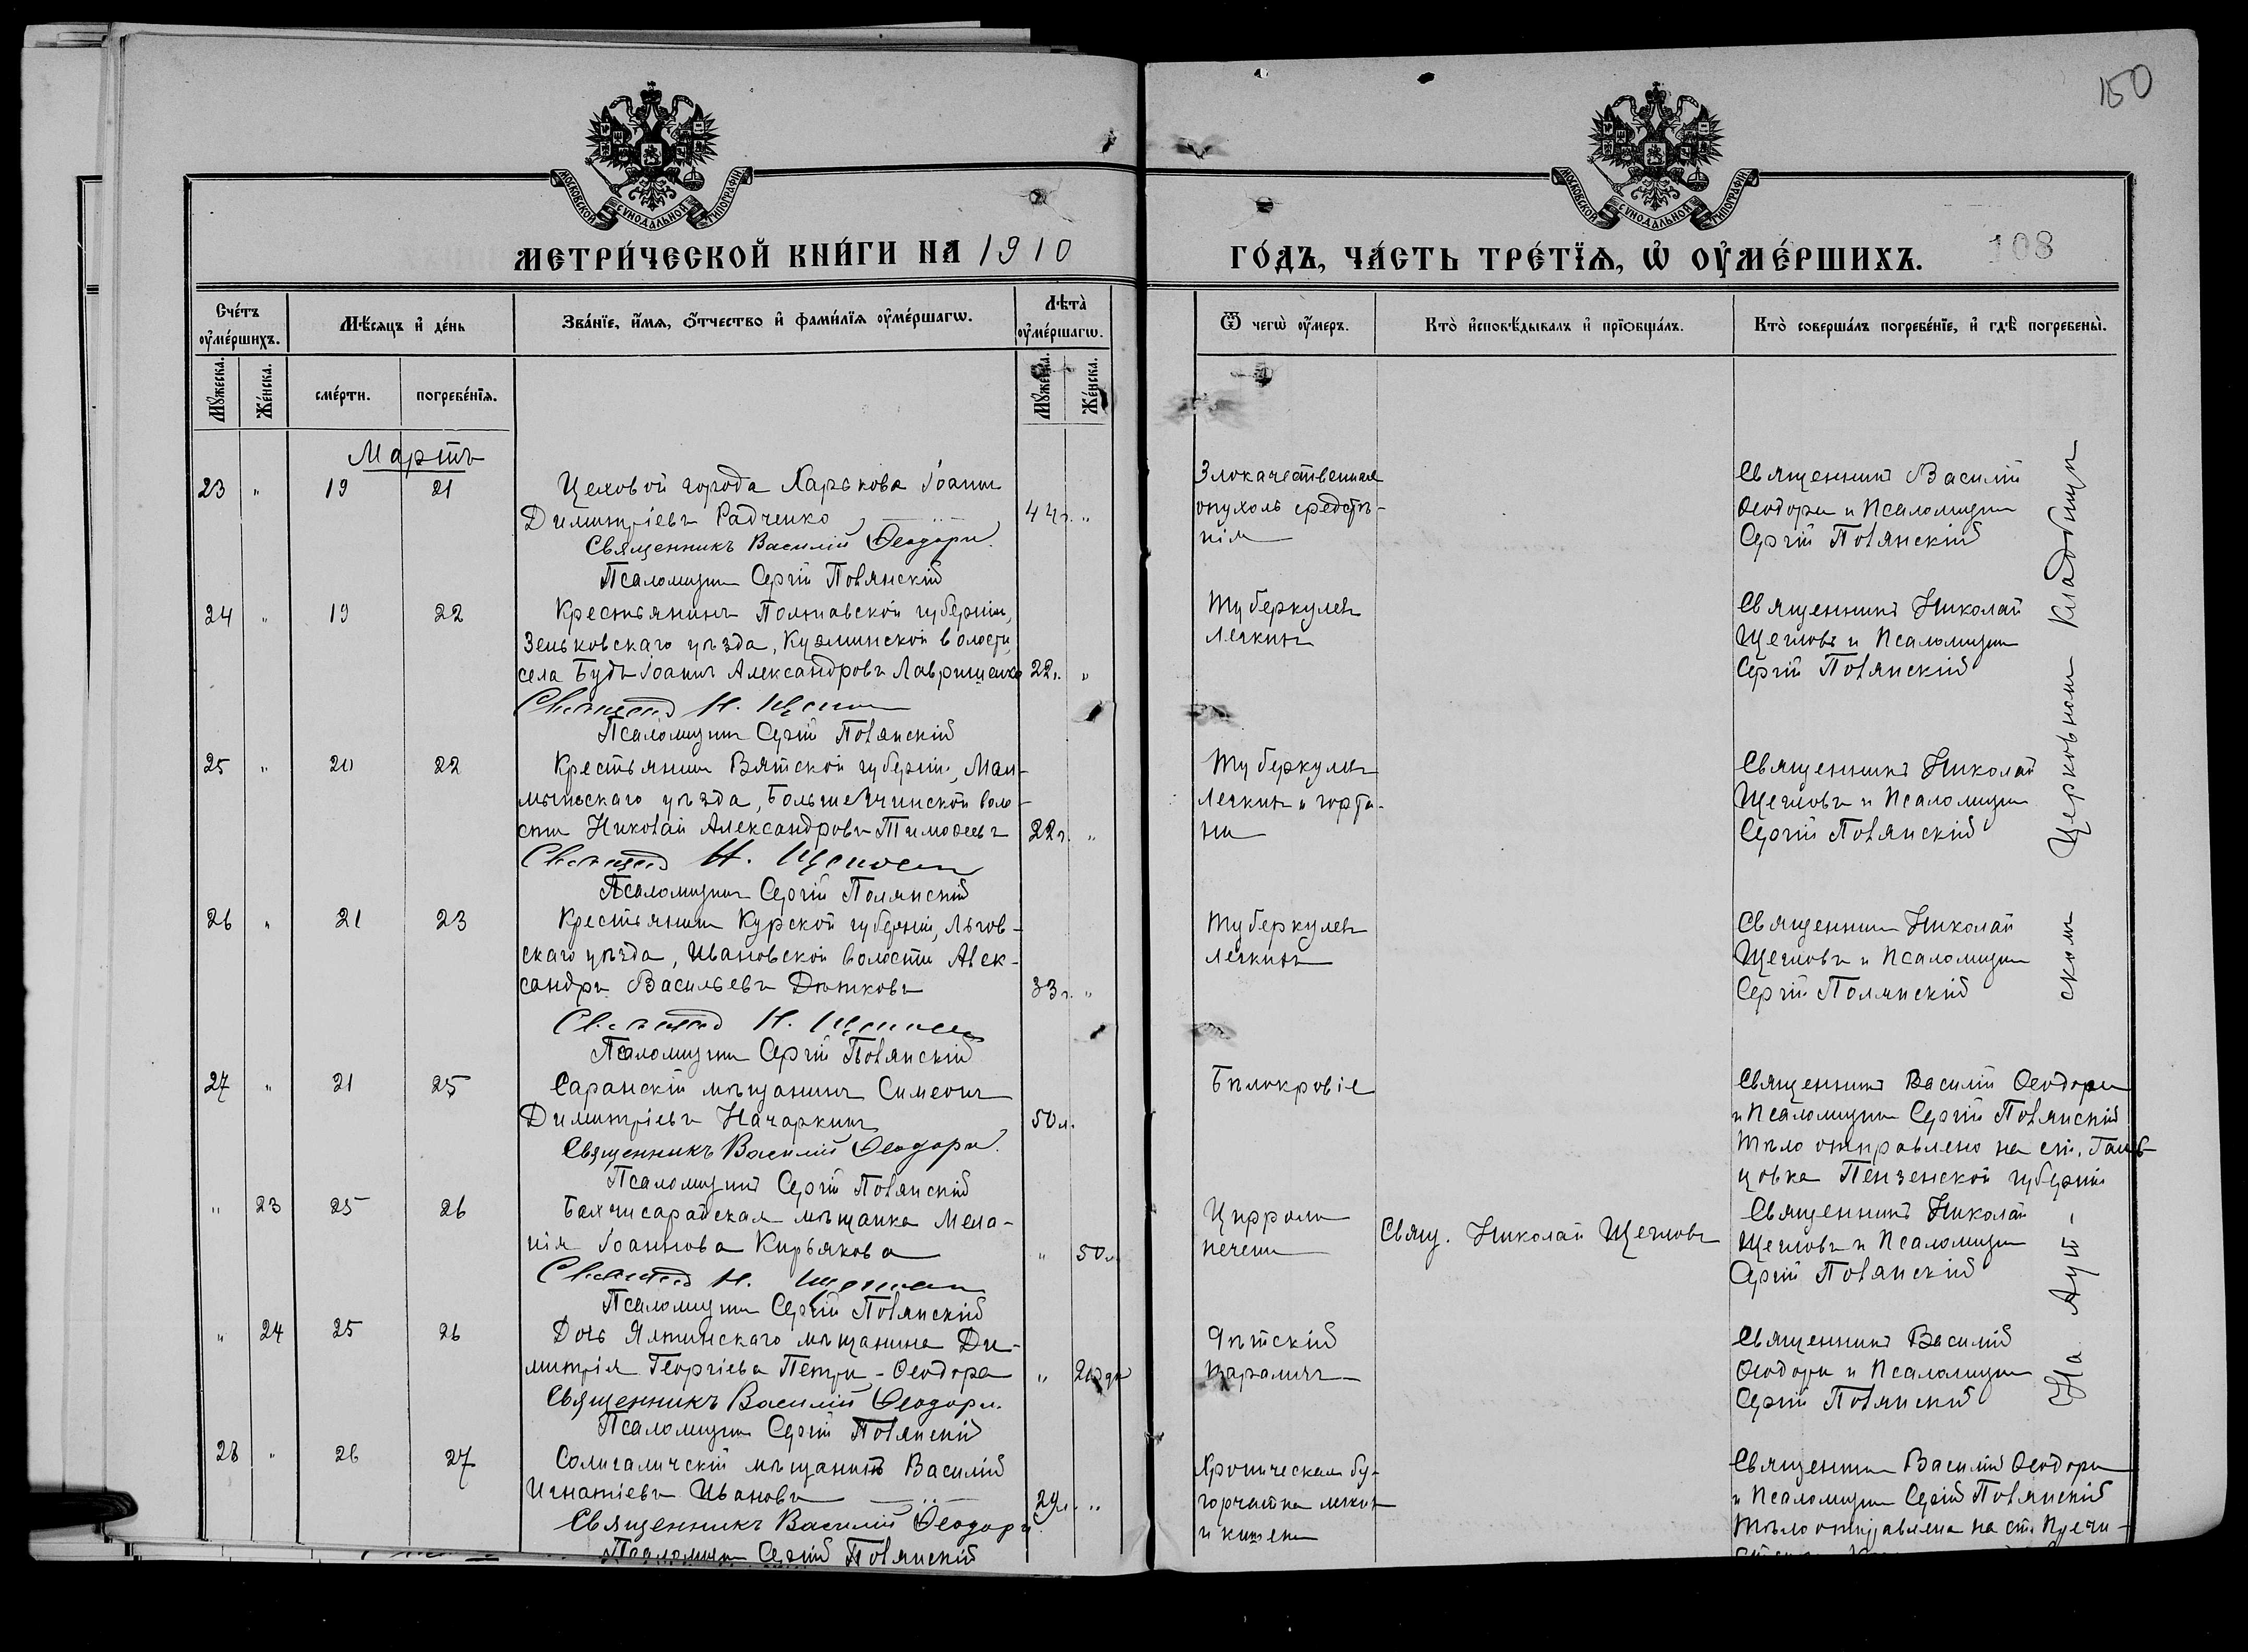 150
МОСКОВСКОЙ СУНОДАЛЬНОЙ ТИПОГРАФІИ
МОСКОВСКОЙ СУНОДАЛЬНОЙ ТИПОГРАФІИ
МЕТРИ́ЧЕСКОЙ КНИ́ГИ НА 1910
ГО́ДЪ, ЧА́СТЬ ТРЕ́ТЇѦ, Ѡ҆ ОУ҆МЕ́РШИХЪ.
108
Сче́тъ оу҆ме́ршихъ.
Мѣ́сяцъ и҆ де́нь
Зва́нїе, и҆́мѧ, ѻ҆́тчество и҆ фами́лїѧ оу҆ме́ршагѡ.
Лѣта̀ оу҆ме́ршагѡ.
Ѿ чегѡ̀ оу҆́меръ.
Кто̀ и҆сповѣ́дывалъ и҆ прїѡбща́лъ.
Кто̀ соверша́лъ погребе́нїе, и҆ гдѣ̀ погребены̀.
Мꙋ́жеска. Же́нска. сме́рти. погребе́нїѧ. Мꙋ́жеска. Же́нска.
Мартъ
23 " 19 21 Цеховой города Харькова Іоаннъ
Димитріевъ Радченко 44г. "
Священникъ Василій Ѳеодори.
Псаломщикъ Сергій Полянскій
Злокачественная
опухоль средостѣ-
нія
Священникъ Василій
Ѳеодори и Псаломщикъ
Сергій Полянскій
24 " 19 22 Крестьянинъ Полтавской губерніи,
Зеньковскаго уѣзда, Куземинской волости,
села Будъ Іоаннъ Александровъ Лаврищенко 22г. "
Священникъ Н. Щегловъ
Псаломщикъ Сергій Полянскій
Туберкулезъ
легкихъ
Священникъ Николай
Щегловъ и Псаломщикъ
Сергій Полянскій
25 " 20 22 Крестьянинъ Вятской губерніи, Мал-
мыжскаго уѣзда, воло-
сти Николай Александровъ Тимоѳеевъ 22г. "
Священникъ Н. Щегловъ
Псаломщикъ Сергій Полянскій
Туберкулезъ
легкихъ и горта-
ни
Священникъ Николай
Щегловъ и Псаломщикъ
Сергій Полянскій
26 " 21 23 Крестьянинъ Курской губерніи, Льгов-
скаго уѣзда, Ивановской волости Алек-
сандръ Васильевъ 33г. "
Священникъ Н. Щегловъ
Псаломщикъ Сергій Полянскій
Туберкулезъ
легкихъ
Священникъ Николай
Щегловъ и Псаломщикъ
Сергій Полянскій
27 " 21 25 Саранскій мѣщанинъ Симеонъ
Димитріевъ Начаркинъ 50л.
Священникъ Василій Ѳеодори.
Псаломщикъ Сергій Полянскій
Бѣлокровіе
Священникъ Василій Ѳеодори
и Псаломщикъ Сергій Полянскій
Тѣло отправлено на ст.
Пензенской губерніи
" 23 25 26 Бахчисарайская мѣщанка Мела-
нія Іоаннова Кирьякова " 50л.
Священникъ Н. Щегловъ
Псаломщикъ Сергій Полянскій
Циррозъ
печени
Свящ. Николай Щегловъ
Священникъ Николай
Щегловъ и Псаломщикъ
Сергій Полянскій
" 24 25 26 Дочь Ялтинскаго мѣщанина Ди-
митрія Георгіева Петри - Ѳеодора "
Священникъ Василій Ѳеодори.
Псаломщикъ Сергій Полянскій
Дѣтскій
параличъ
Священникъ Василій
Ѳеодори и Псаломщикъ
Сергій Полянскій
28 " 26 27 Солигаличскій мѣщанинъ Василій
Игнатіевъ Ивановъ 29л. "
Священникъ Василій Ѳеодори.
Псаломщикъ Сергій Полянскій
Хроническая бу-
горчатка легкихъ
и кишекъ
Священникъ Василій Ѳеодори
и Псаломщикъ Сергій Полянскій
Тѣло отправлено на ст.
На Аут-
скомъ
Церковномъ Кладбищѣ